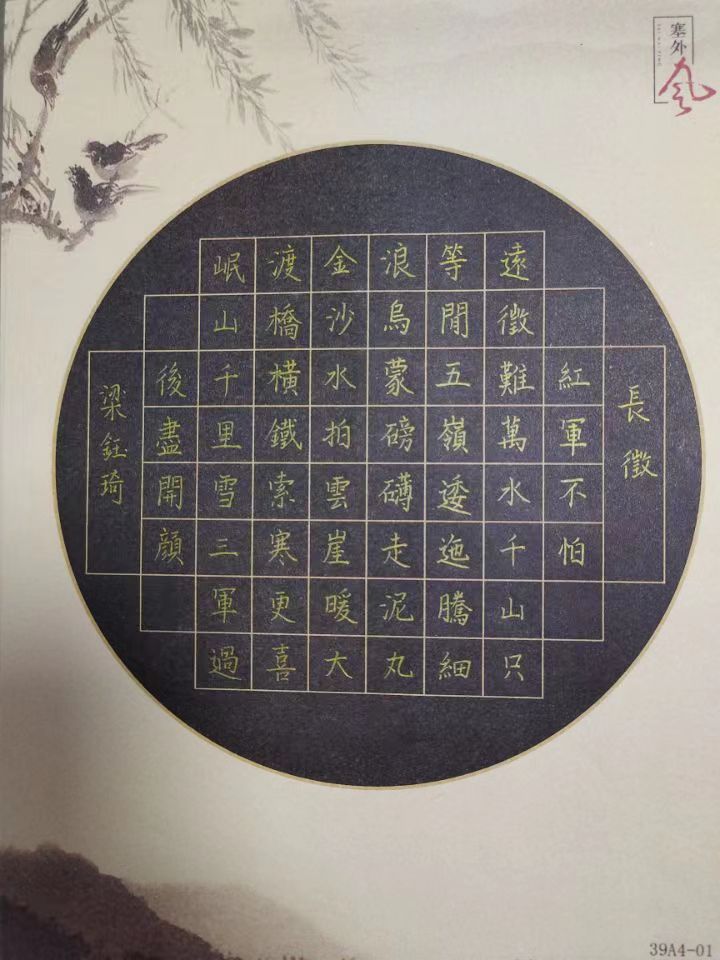 塞外
风
長徵
紅軍不怕
遠徵難萬水千山只
等閒五嶺逶迤騰細
浪烏蒙磅礴走泥丸
金沙水拍雲崖暖大
渡橋橫鐵索寒更喜
岷山千里雪三軍過
後盡開顏
梁鈺琦
39A4-01